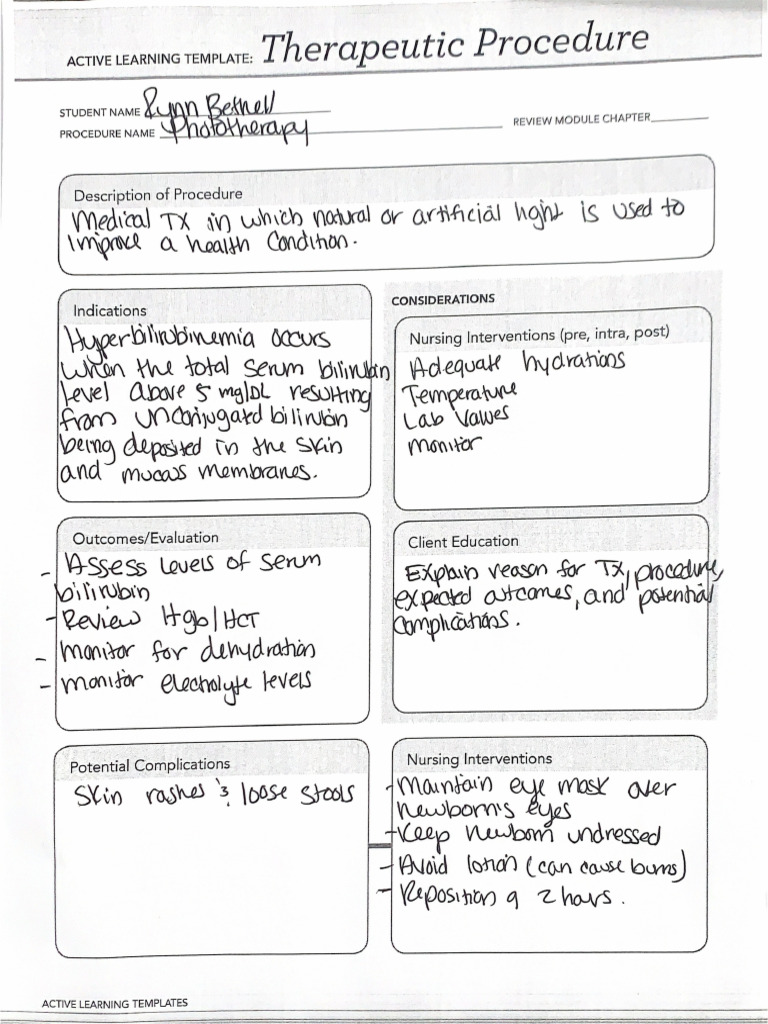 ACTIVE LEARNING TEMPLATE: Therapeutic Procedure
STUDENT NAME Rynn Bethell
PROCEDURE NAME Phototherapy
REVIEW MODULE CHAPTER
Description of Procedure
Medical TX in which natural or artificial light is used to
improve a health condition.
Indications
Hyperbilirubinemia occurs
when the total serum bilirubin
level above 5 mg/DL resulting
from unconjugated bilirubin
being deposited in the skin
and mucous membranes.
CONSIDERATIONS
Nursing Interventions (pre, intra, post)
Adequate hydrations
Temperature
Lab Values
monitor
Outcomes/Evaluation
- Assess levels of serum
bilirubin
- Review Hgb/HCT
- monitor for dehydration
- monitor electrolyte levels
Client Education
Explain reason for TX, procedure,
expected outcomes, and potential
complications.
Potential Complications
Skin rashes & loose stools
Nursing Interventions
- Maintain eye mask over
newborn's eyes
- Keep newborn undressed
- Avoid lotion (can cause burns)
- Reposition q 2 hours.
ACTIVE LEARNING TEMPLATES